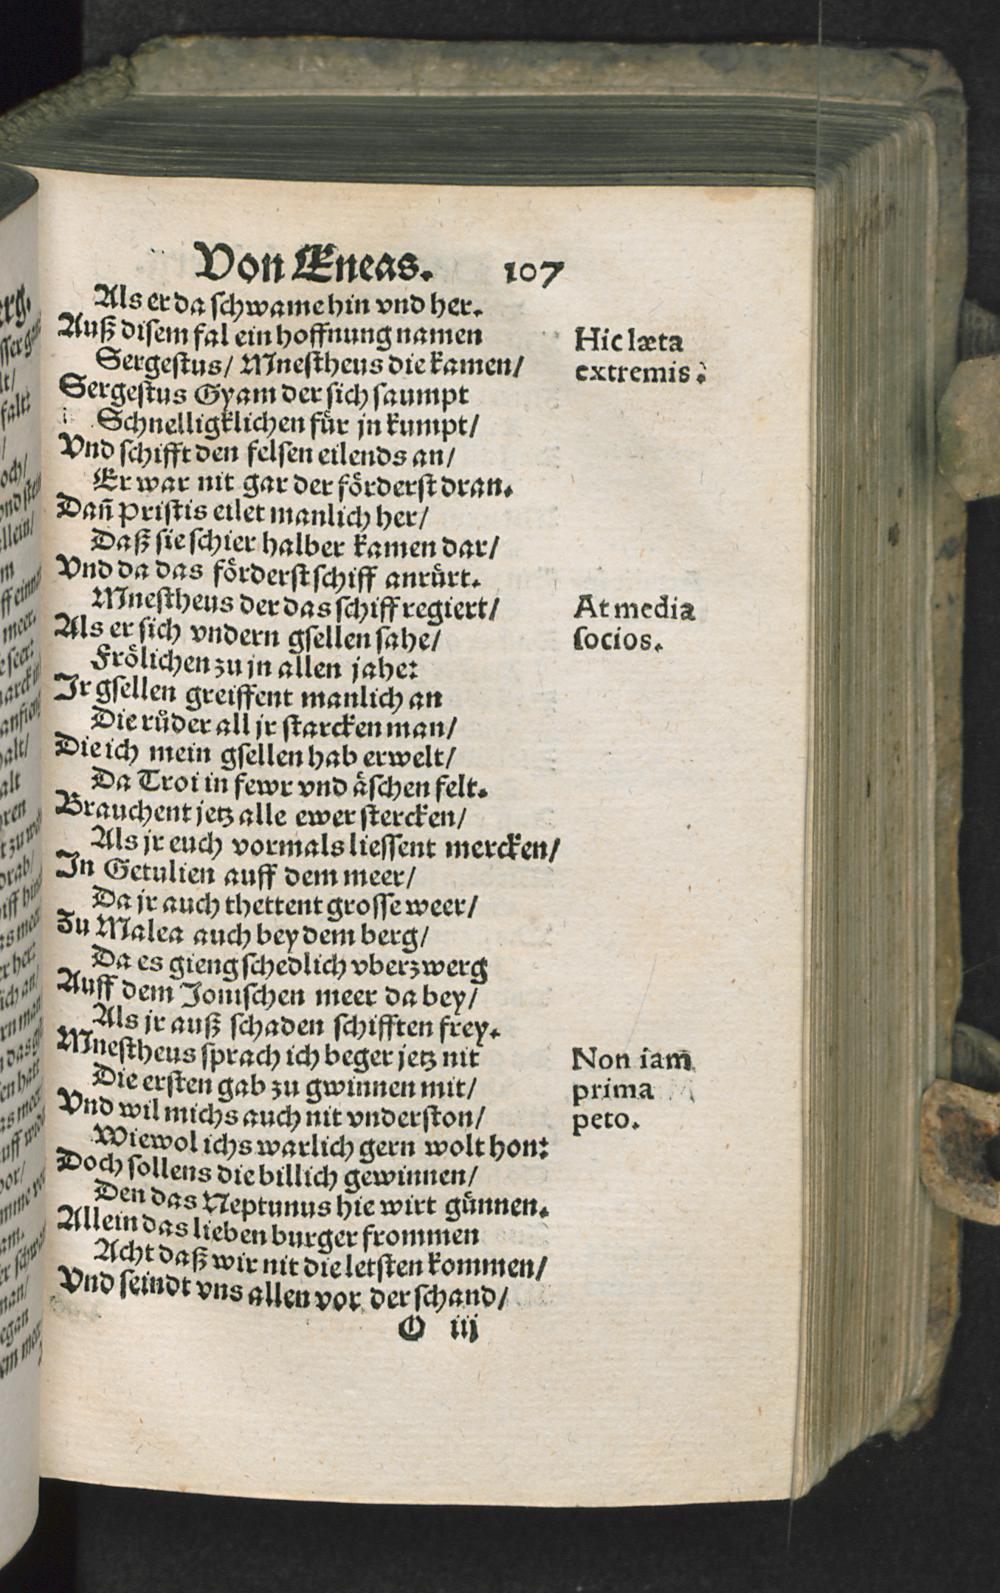 Von Æneas. 107
Als er da schwame hin vnd her.
Auß disem fal ein hoffnung namen
Sergestus/ Mnestheus die kamen/
Sergestus Gyam der sich saumpt
Schnelligklichen fuͤr jn kumpt/
Vnd schifft den felsen eilends an/
Er war nit gar der foͤrderst dran.
Dañ pristis eilet manlich her/
Daß sie schier halber kamen dar/
Vnd da das foͤrderst schiff anruͤrt.
Mnestheus der das schiff regiert/
Als er sich vndern gsellen sahe/
Froͤlichen zu jn allen jahe:
Ir gsellen greiffent manlich an
Die růder all jr starcken man/
Die ich mein gsellen hab erwelt/
Da Troi in fewr vnd aͤschen felt.
Brauchent jetz alle ewer stercken/
Als jr euch vormals liessent mercken/
In Getulien auff dem meer/
Da jr auch thettent grosse weer/
Zu Malea auch bey dem berg/
Da es gieng schedlich vberzwerg
Auff dem Jonischen meer da bey/
Als jr auß schaden schifften frey.
Mnestheus sprach ich beger jetz nit
Die ersten gab zu gwinnen mit/
Vnd wil michs auch nit vnderston/
Wiewol ichs warlich gern wolt hon:
Doch sollens die billich gewinnen/
Den das Neptunus hie wirt guͤnnen.
Allein das lieben burger frommen
Acht daß wir nit die letsten kommen/
Vnd seindt vns allen vor der schand/
O iij
Hic læta
extremis.
At media
socios.
Non iam
prima
peto.